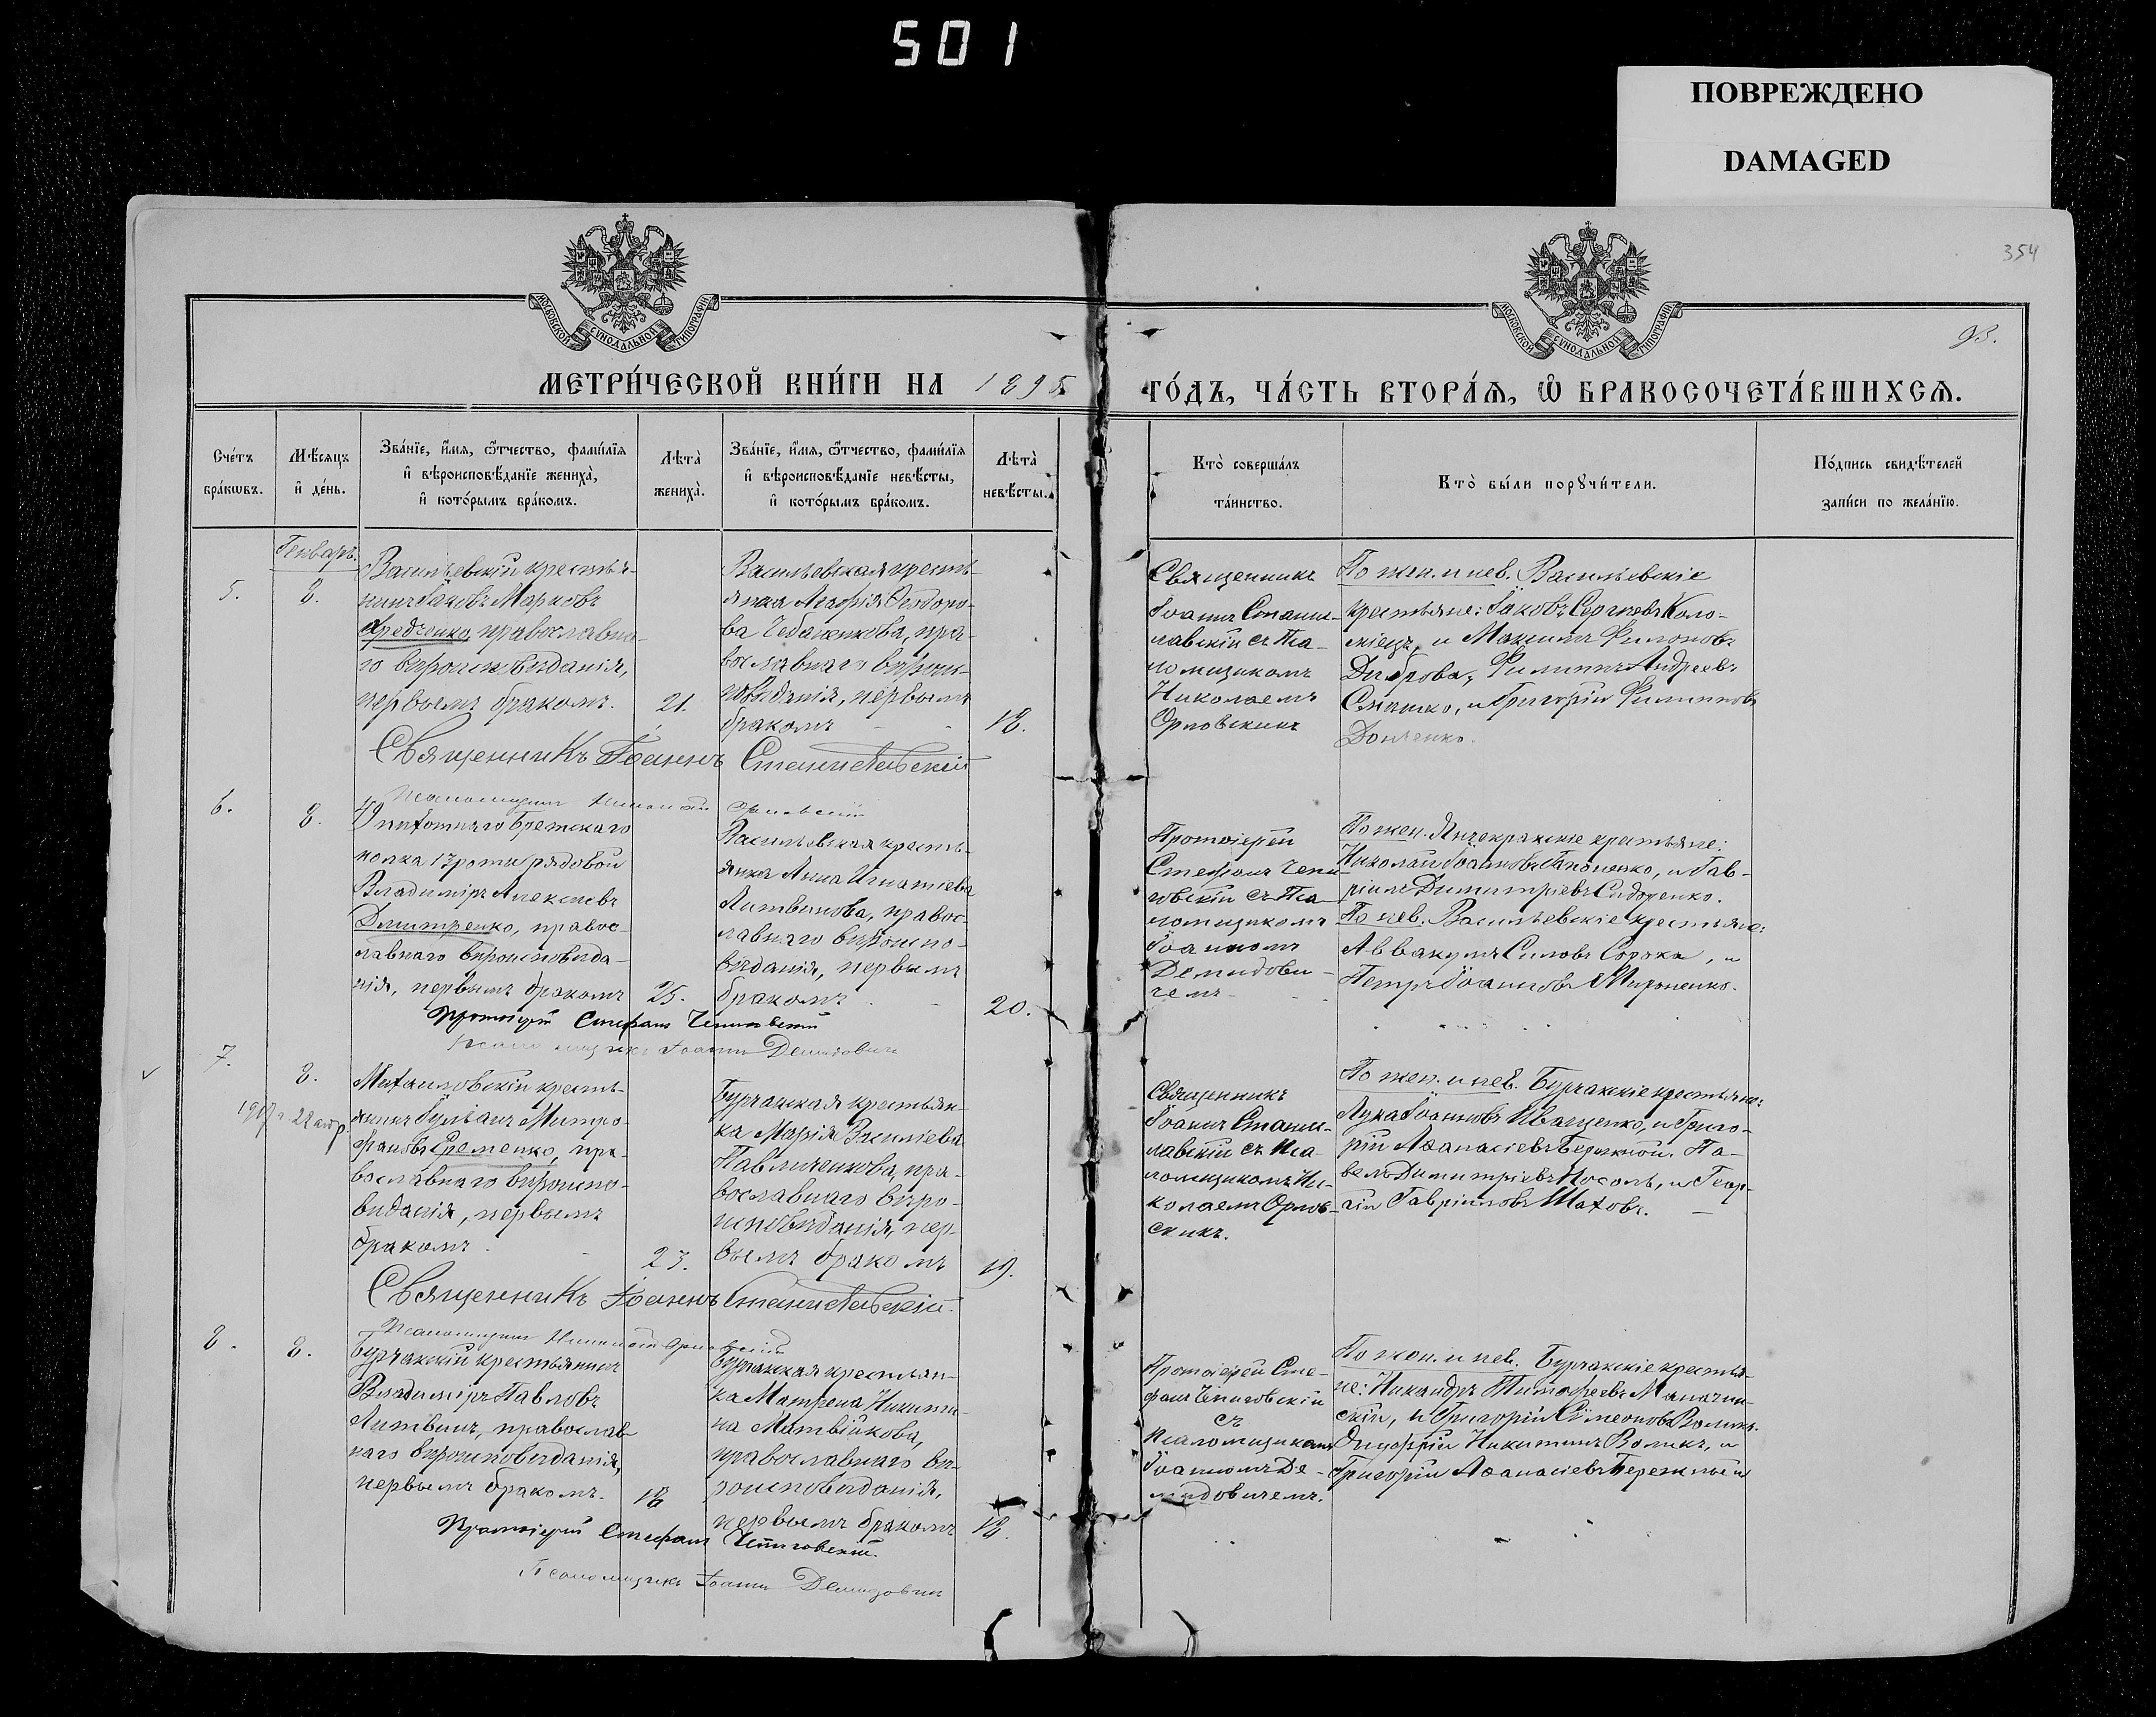 501
ПОВРЕЖДЕНО
DAMAGED
354
93.
МОСКОВСКОЙ СѴНОДАЛЬНОЙ ТИПОГРАФІИ
МОСКОВСКОЙ СѴНОДАЛЬНОЙ ТИПОГРАФІИ
МЕТРИ́ЧЕСКОЙ КНИ́ГИ НА 1895
ГО́ДЪ, ЧА́СТЬ ВТОРА́Ѧ, Ѽ БРАКОСОЧЕТА́ВШИХСѦ.
Сче́тъ
бра́кѡвъ.
Мѣ́сяцъ
и҆ де́нь.
Зва́нїе, и҆́мѧ, ѻ҆́тчество, фами́лїѧ
и҆ вѣроисповѣ́данїе жениха̀,
и҆ кото́рымъ бра́комъ.
Лѣта̀
жениха̀.
Зва́нїе, и҆́мѧ, ѻ҆́тчество, фами́лїѧ
и҆ вѣроисповѣ́данїе невѣ́сты,
и҆ кото́рымъ бра́комъ.
Лѣта̀
невѣ́сты.
Кто̀ соверша́лъ
та́инство.
Кто̀ бы́ли порꙋчи́тели.
По́дпись свидѣ́телей
за́писи по жела́нїю.
Генварь.
5.
8.
Васильевскій крестья-
нинъ Іаковъ Марковъ
Фредченко, православна-
го вѣроисповѣданія,
первымъ бракомъ.
21.
Васильевская кресть-
янка Агафія Ѳеодоро-
ва Чебаненкова, пра-
вославнаго вѣроис-
повѣданія, первымъ
бракомъ
18.
Священникъ
Іоаннъ Стани-
лавскій съ Пса-
ломщикомъ
Николаемъ
Орловскимъ
По жен. и нев. Васильевскіе
крестьяне: Іаковъ Сергіевъ Коло-
міецъ, и Максимъ Филоновъ
Диброва, Филиппъ Андреевъ
Сташко, и Григорій Филипповъ
Донченко.
Священникъ Іоаннъ Станиславскій
Псаломщикъ Николай Орловскій
6.
8.
полка 13 роты рядовой
Владиміръ Алексіевъ
Дмитренко, правос-
лавнаго вѣроисповѣда-
нія, первымъ бракомъ
25.
Васильевская кресть-
янка Анна Игнатіева
Литвинова, правос-
лавнаго вѣроиспо-
вѣданія, первымъ
бракомъ
20.
Протоіерей
Стефанъ Чепи-
говскій съ Пса-
ломщикомъ
Іоанномъ
Демидови-
чемъ
По жен. Янчекракскіе крестьяне:
Николай Іоанновъ Гапоненко, и Гав-
ріилъ Димитріевъ Сидоренко.
По нев. Васильевскіе крестьяне:
Аввакумъ Силовъ Сорока, и
Петръ Іоанновъ Мироненко.
Протоіерей Стефанъ Чепиговскій
Псаломщикъ Іоаннъ Демидовичъ
7.
8.
1917 г. 22 апр.
Михайловскій кресть-
янинъ Іуліанъ Митро-
фановъ Еременко, пра-
вославнаго вѣроиспо-
вѣданія, первымъ
бракомъ
23.
Бурчакская крестьян-
ка Марія Василіева
Павличенкова, пра-
вославнаго вѣро-
исповѣданія, пер-
вымъ бракомъ
19.
Священникъ
Іоаннъ Стани-
лавскій съ Пса-
ломщикомъ Ни-
колаемъ Орлов-
скимъ.
По жен. и нев. Бурчакскіе крестьяне:
Лука Іоанновъ Иващенко, и Григо-
рій Аѳанасіевъ Бережной. Па-
велъ Димитріевъ Носоль, и Геор-
гій Гавріиловъ Шаховъ.
Священникъ Іоаннъ Станиславскій.
Псаломщикъ Николай Орловскій
8.
8.
Бурчакскій крестьянинъ
Владиміръ Павловъ
Литвинъ, православ-
наго вѣроисповѣданія,
первымъ бракомъ.
18
Бурчакская крестьян-
ка Матрена Никити-
на Матвійкова,
православнаго вѣ-
роисповѣданія,
первымъ бракомъ
18.
Протоіерей Сте-
фанъ Чепиговскій
съ
Псаломщикомъ
Іоанномъ Де-
мидовичемъ.
По жен. и нев. Бурчакскіе крестья-
не: Никандръ Тимоѳеевъ
скій, и Григорій Симеоновъ Воликъ.
Онуфрій Никитинъ Воликъ, и
Григорій Аѳанасіевъ Бережный
Протоіерей Стефанъ Чепиговскій.
Псаломщикъ Іоаннъ Демидовичъ